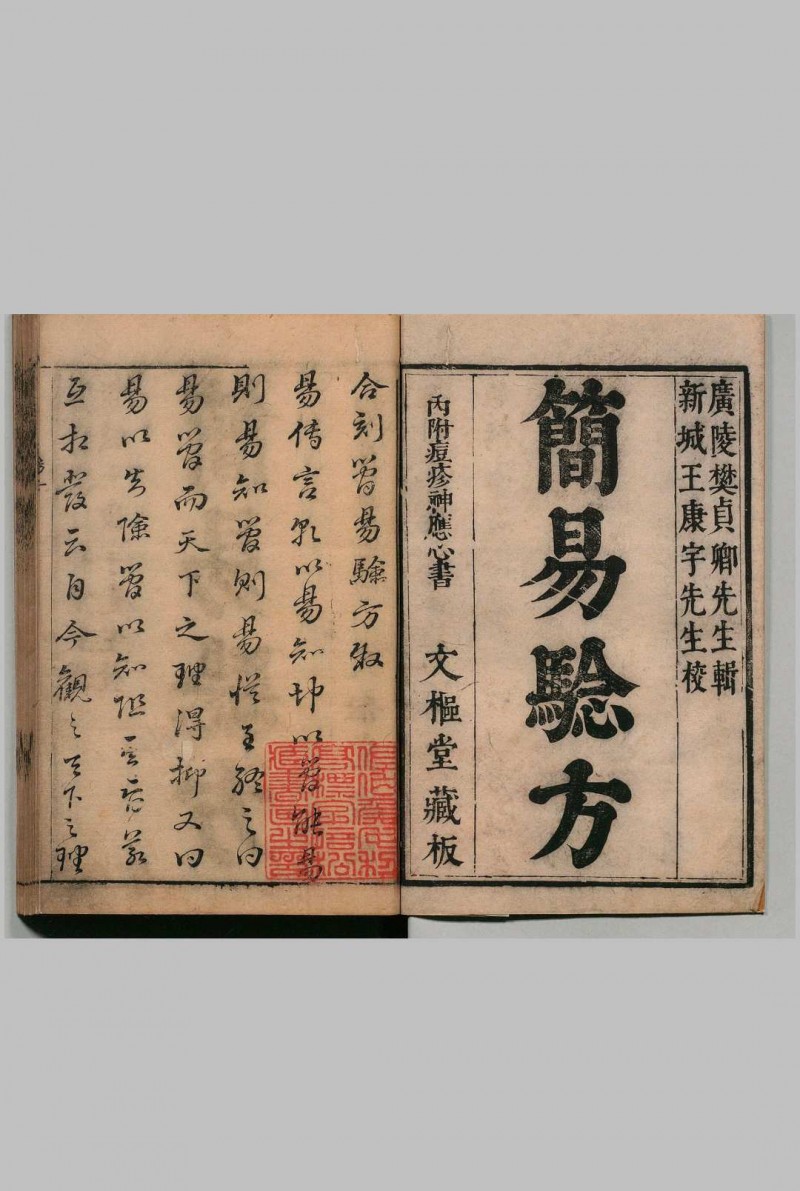 廣陵樊貞卿先生輯
新城王康宇先生校
簡易騐方
內附痘疹神應心書
文樞堂藏板
合刻簡易驗方敘
易傳言乾以易知坤以簡能易
則易知簡則易從至終之曰
易簡而天下之理得抑又曰
易以知險簡以知阻
互相發云自今觀之天下之理